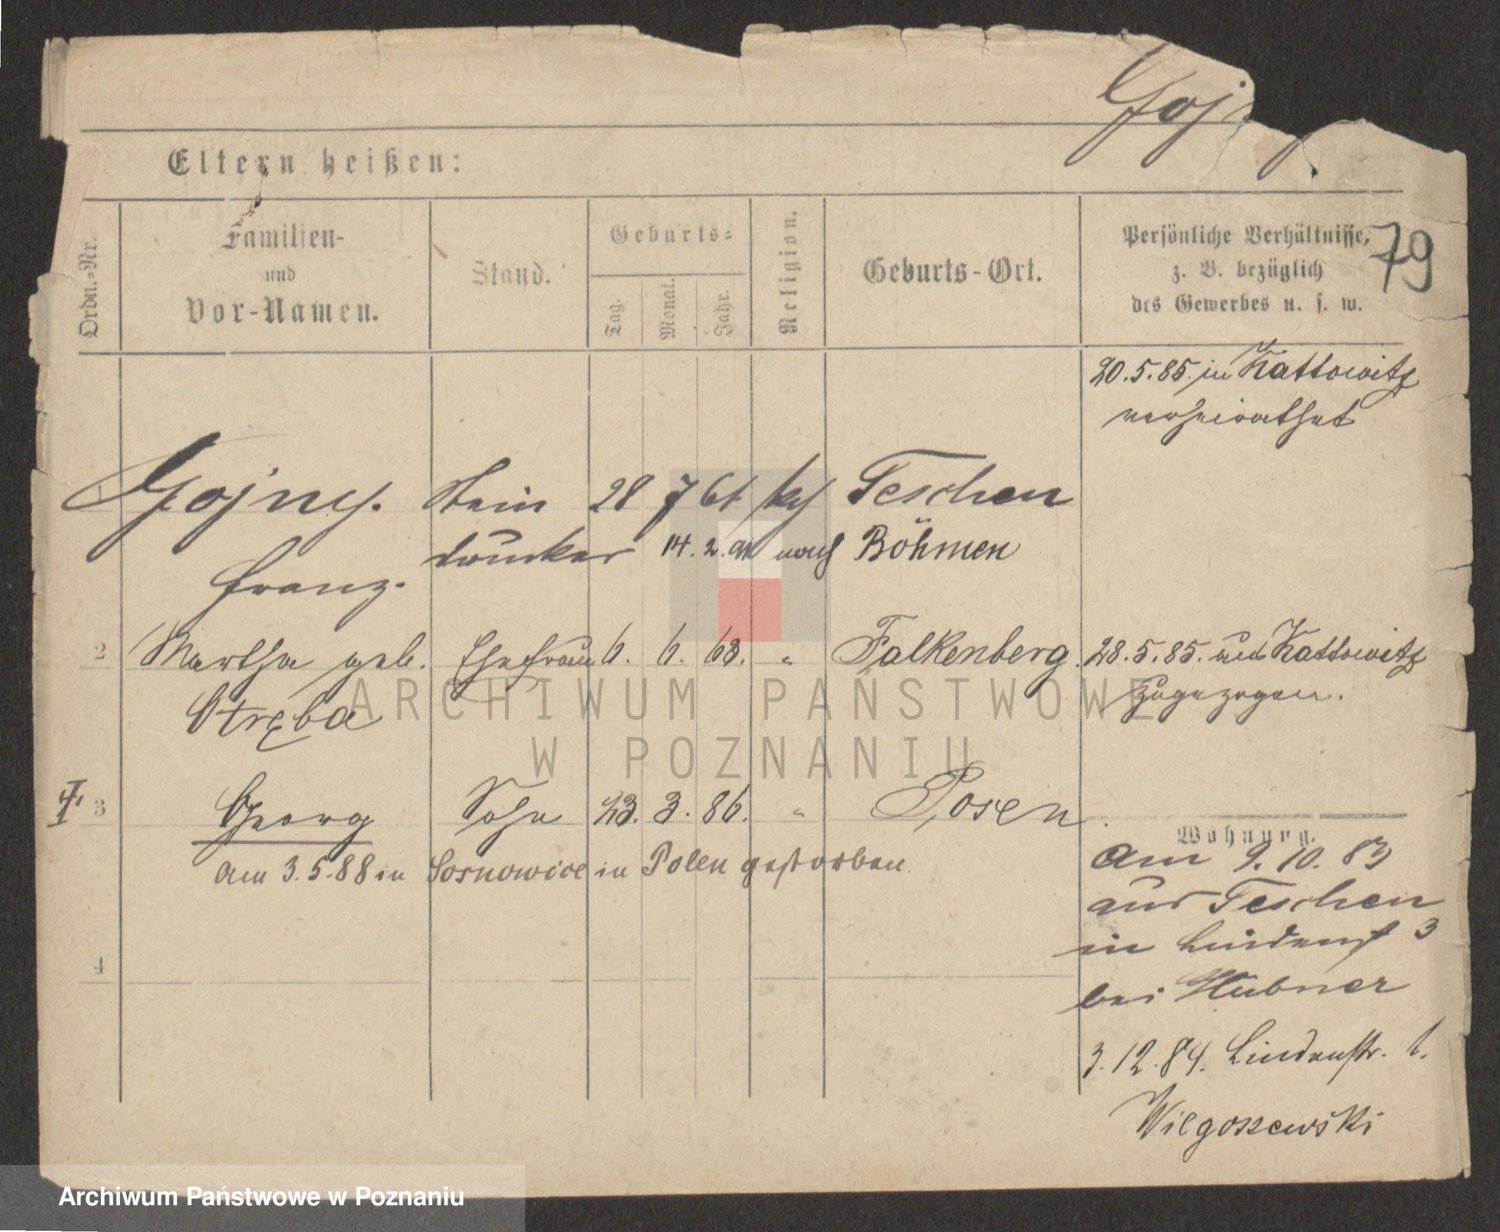 Goj
Eltern heißen:
79
Ordn.-Nr.
Familien-
und
Vor-Namen.
Stand.
Geburts-
Tag.
Monat.
Jahr.
Religion.
Geburts-Ort.
Persönliche Verhältnisse,
z. B. bezüglich
des Gewerbes u. s. w.
20.5.85. in Kattowitz
verheirathet
Gojny. Stein 28 7 61 kth Teschen
drucker 14.2.91 nach Böhmen
Franz.
2 Martha geb. Ehefrau 6. 6. 63. " Falkenberg. 28.5.85. aus Kattowitz
Stręba zugezogen.
3 Georg Sohn 23. 3. 86. " Posen.
am 3.5.88 in Sosnowice in Polen gestorben.
Wohnung.
am 9.10.83
aus Teschen
in Lindenst 3
bei Hübner
4
3.12.84. Lindenstr. 1.
Wilgoszewski
ARCHIWUM PAŃSTWOWE
W POZNANIU
Archiwum Państwowe w Poznaniu